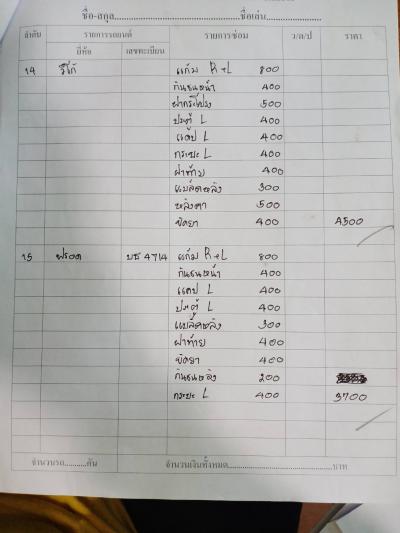 ชื่อ-สกุล........................................ชื่อเล่น........................
ลำดับ รายการรถยนต์ รายการซ่อม ว/ด/ป ราคา
ยี่ห้อ เลขทะเบียน
14 รีโว้ แก้ม R+L 800
กันชนหน้า 400
ฝากระโปรง 500
ประตู L 400
แค๊ป L 400
กระบะ L 400
ฝาท้าย 400
แบล็คหลัง 300
หลังคา 500
ขัดยา 400 4500
15 ฟรอด บธ 4714 แก้ม R+L 800
กันชนหน้า 400
แคป L 400
ประตู L 400
แบล็คหลัง 300
ฝาท้าย 400
ขัดยา 400
กันชนหลัง 200
กระบะ L 400 3700
จำนวนรถ..........คัน จำนวนเงินทั้งหมด........................................บาท